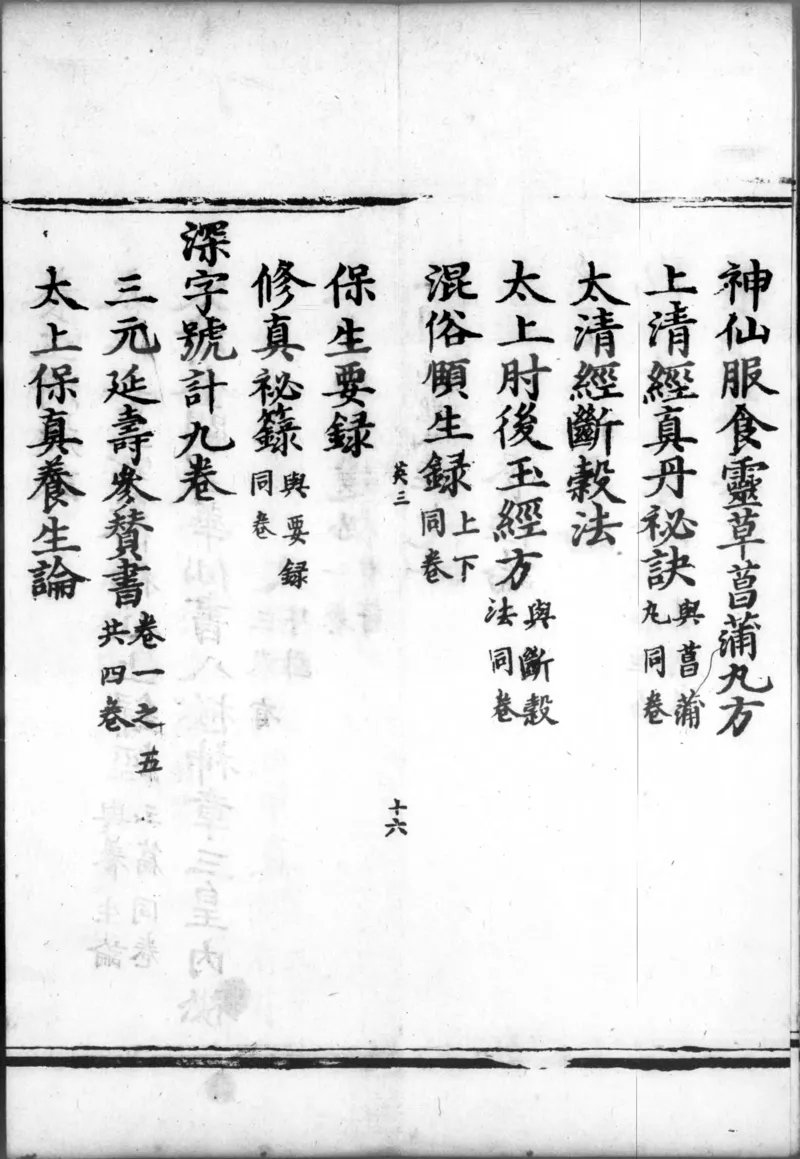 神仙服食靈草菖蒲丸方
上清經真丹祕訣與菖蒲丸同卷
太清經斷穀法
太上肘後玉經方與斷穀法同卷
混俗頤生録上下同卷
英三
十六
保生要録
修真祕籙與要録同卷
深字號計九卷
三元延壽參贊書卷一之五共四卷
太上保真養生論